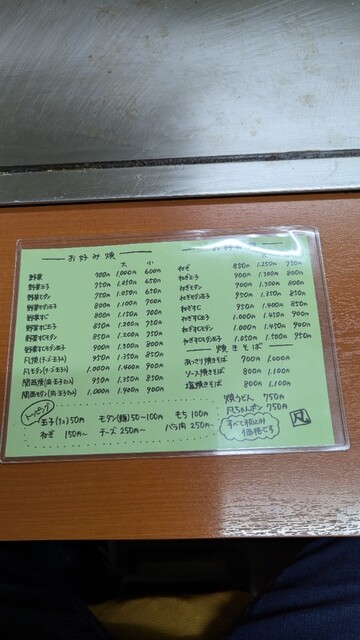 お好み焼
大 小
野菜 700円 1,000円 600円
野菜玉子 750円 1,050円 650円
野菜モダン 750円 1,050円 650円
野菜モダン玉子 800円 1,100円 700円
野菜すじ 800円 1,150円 700円
野菜すじ玉子 850円 1,200円 750円
野菜すじモダン 850円 1,200円 750円
野菜すじモダン玉子 900円 1,300円 800円
凡焼(チーズ・玉子入) 950円 1,350円 850円
凡モダン(チーズ・玉子入) 1,000円 1,400円 900円
関西焼(肉・玉子入) 950円 1,350円 850円
関西モダン(肉・玉子入) 1,000円 1,400円 900円
お好み焼
ねぎ 850円 1,250円 750円
ねぎ玉子 900円 1,300円 800円
ねぎモダン 900円 1,300円 800円
ねぎモダン玉子 950円 1,350円 850円
ねぎすじ 950円 1,400円 850円
ねぎすじ玉子 1,000円 1,450円 900円
ねぎすじモダン 1,000円 1,450円 900円
ねぎすじモダン玉子 1,050円 1,500円 950円
焼きそば
あっさり焼きそば 700円 1,000円
ソース焼きそば 800円 1,100円
塩焼きそば 800円 1,100円
焼うどん 750円
凡ちゃんポン 750円
トッピング
玉子(1コ)50円 モダン(麺)50~100円 もち 100円
ねぎ 150円~ チーズ 250円~ バラ肉 250円~
すべて税込み
価格です
凡